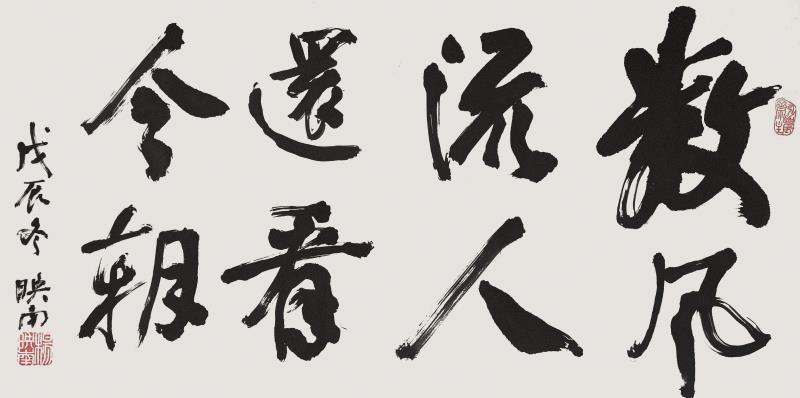 數風
流人
還看
今朝
戊辰冬 映南